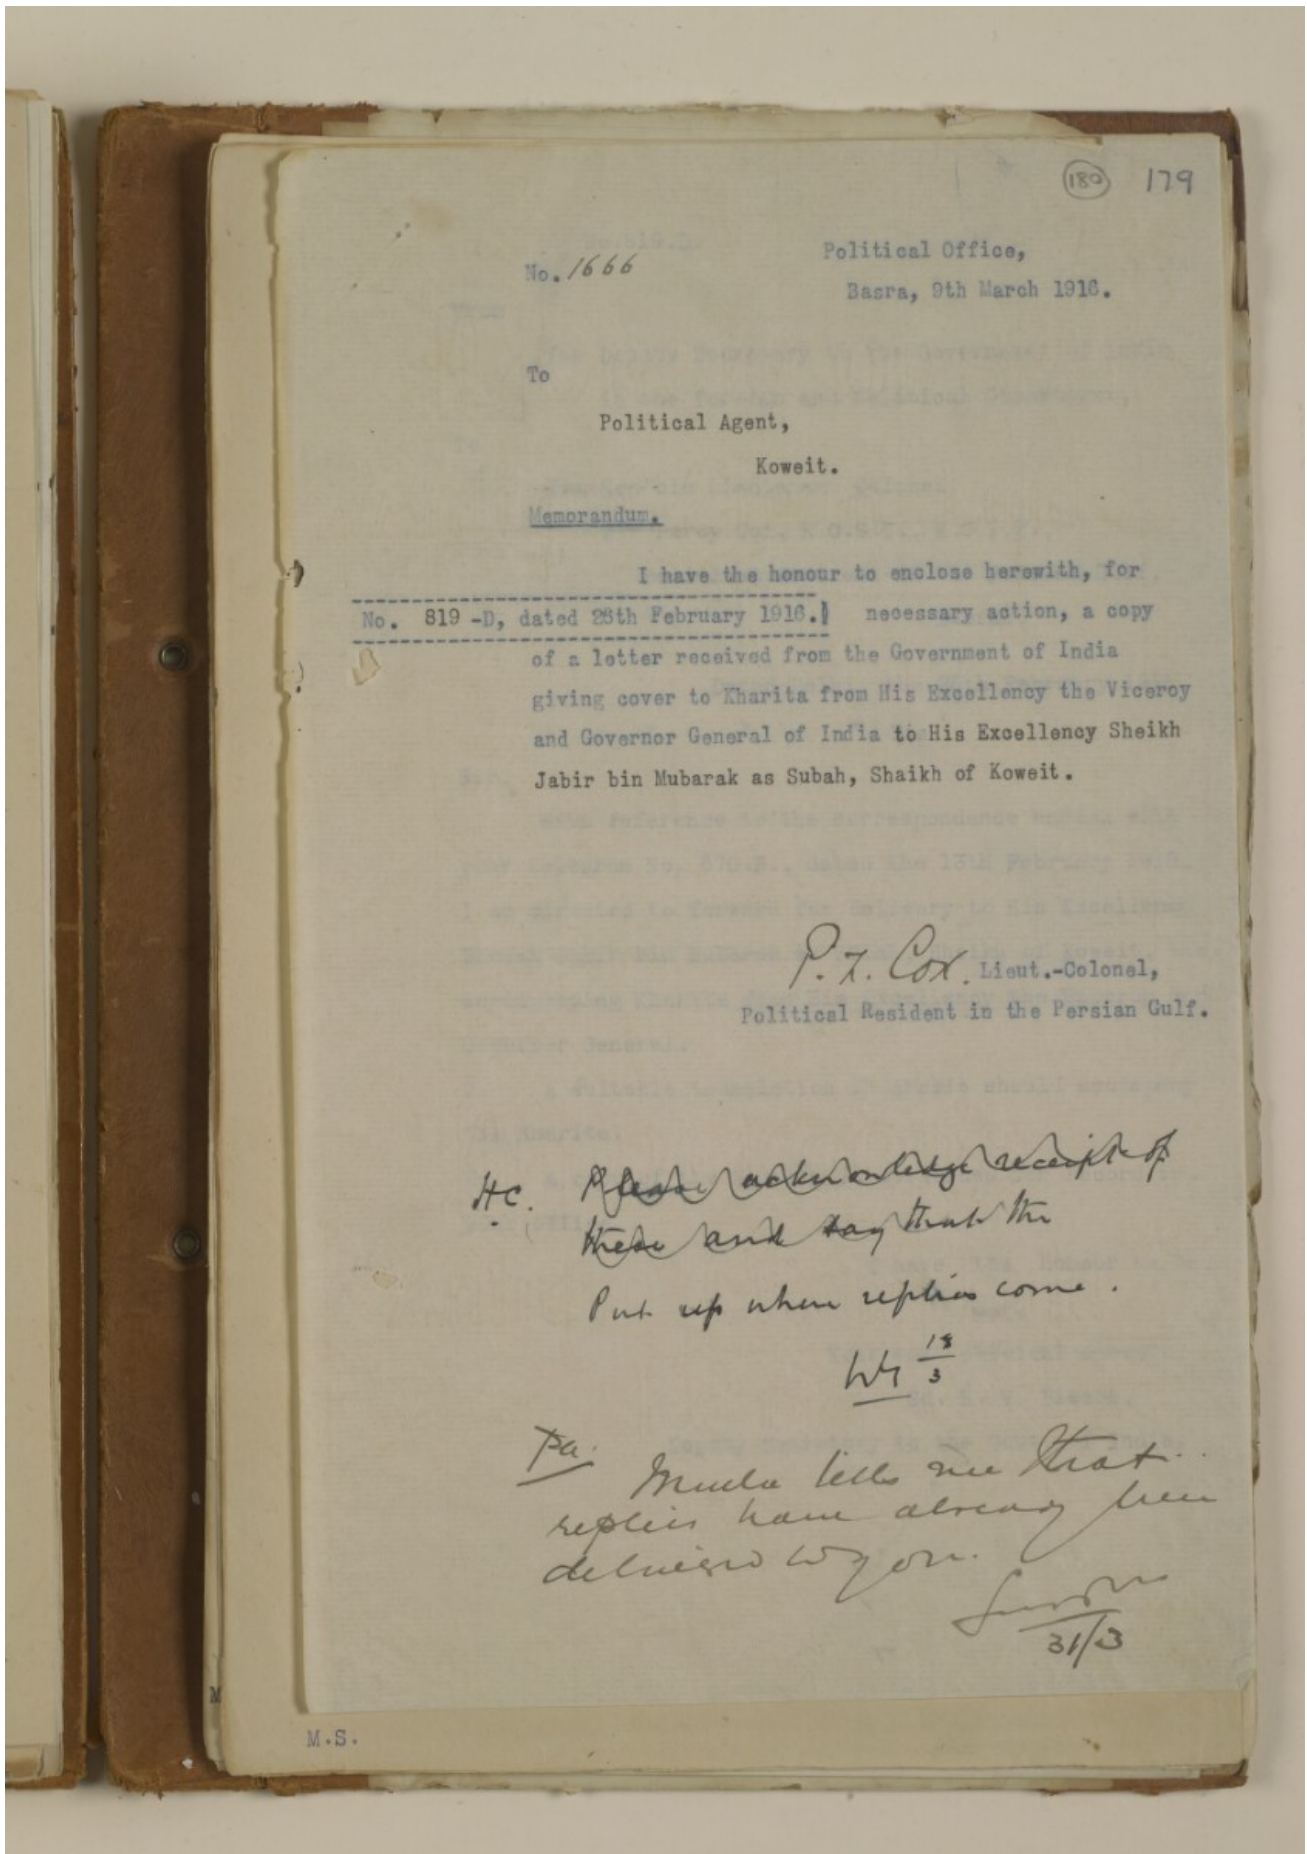 180 179
No. 1666
Political Office,
Basra, 9th March 1916.
To
Political Agent,
Koweit.
Memorandum.
I have the honour to enclose herewith, for
No. 819 -D, dated 26th February 1916.) necessary action, a copy
of a letter received from the Government of India
giving cover to Kharita from His Excellency the Viceroy
and Governor General of India to His Excellency Sheikh
Jabir bin Mubarak as Subah, Shaikh of Koweit.
P. Z. Cox. Lieut.-Colonel,
Political Resident in the Persian Gulf.
H.C. Please acknowledge receipt of
these and say that the
Put up when replies come.
18/3
P.a. Mulla tells me that
replies have already been
delivered to you.
31/3
M.S.